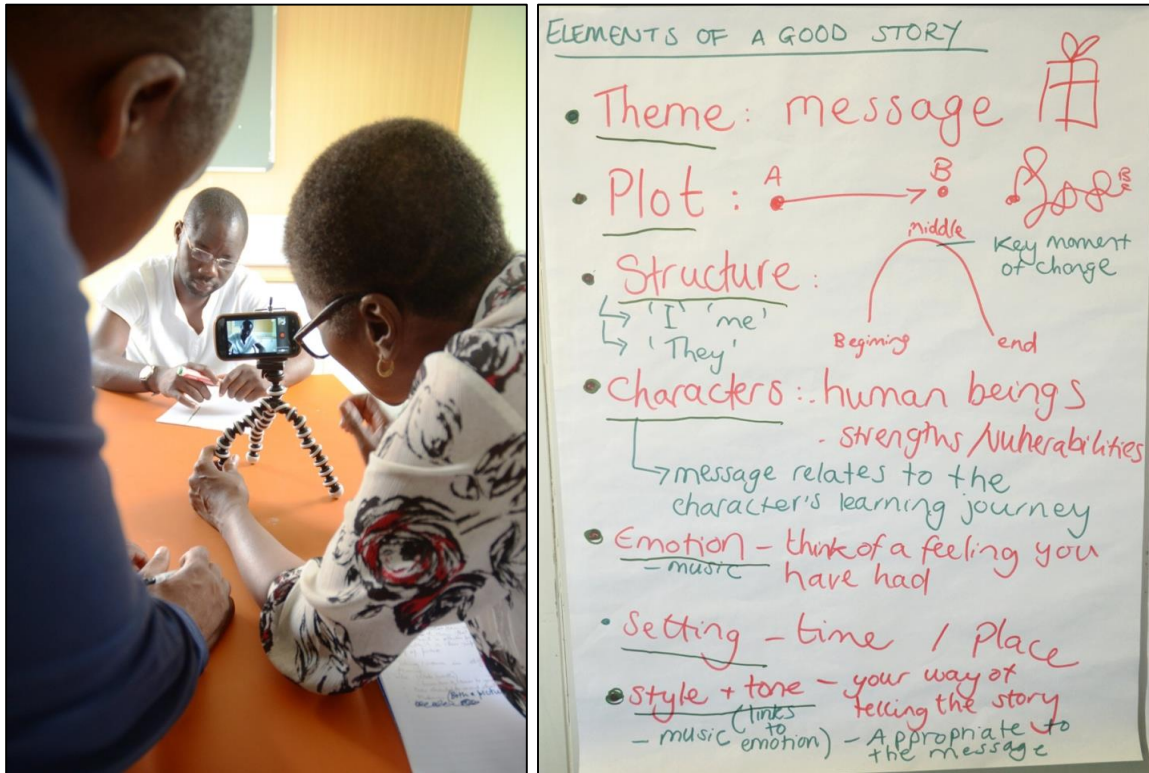 ELEMENTS OF A GOOD STORY
• Theme: message
• Plot: A B
B
• Structure:
Middle
Key moment of change
'I' 'me'
'They'
Beginning end
• Characters: human beings
- strengths/vulnerabilities
message relates to the
character's learning journey
• Emotion - think of a feeling you
- music have had
• Setting - time / Place
• Style + tone - your way of
telling the story
- music (links to emotion) - Appropriate to
the message